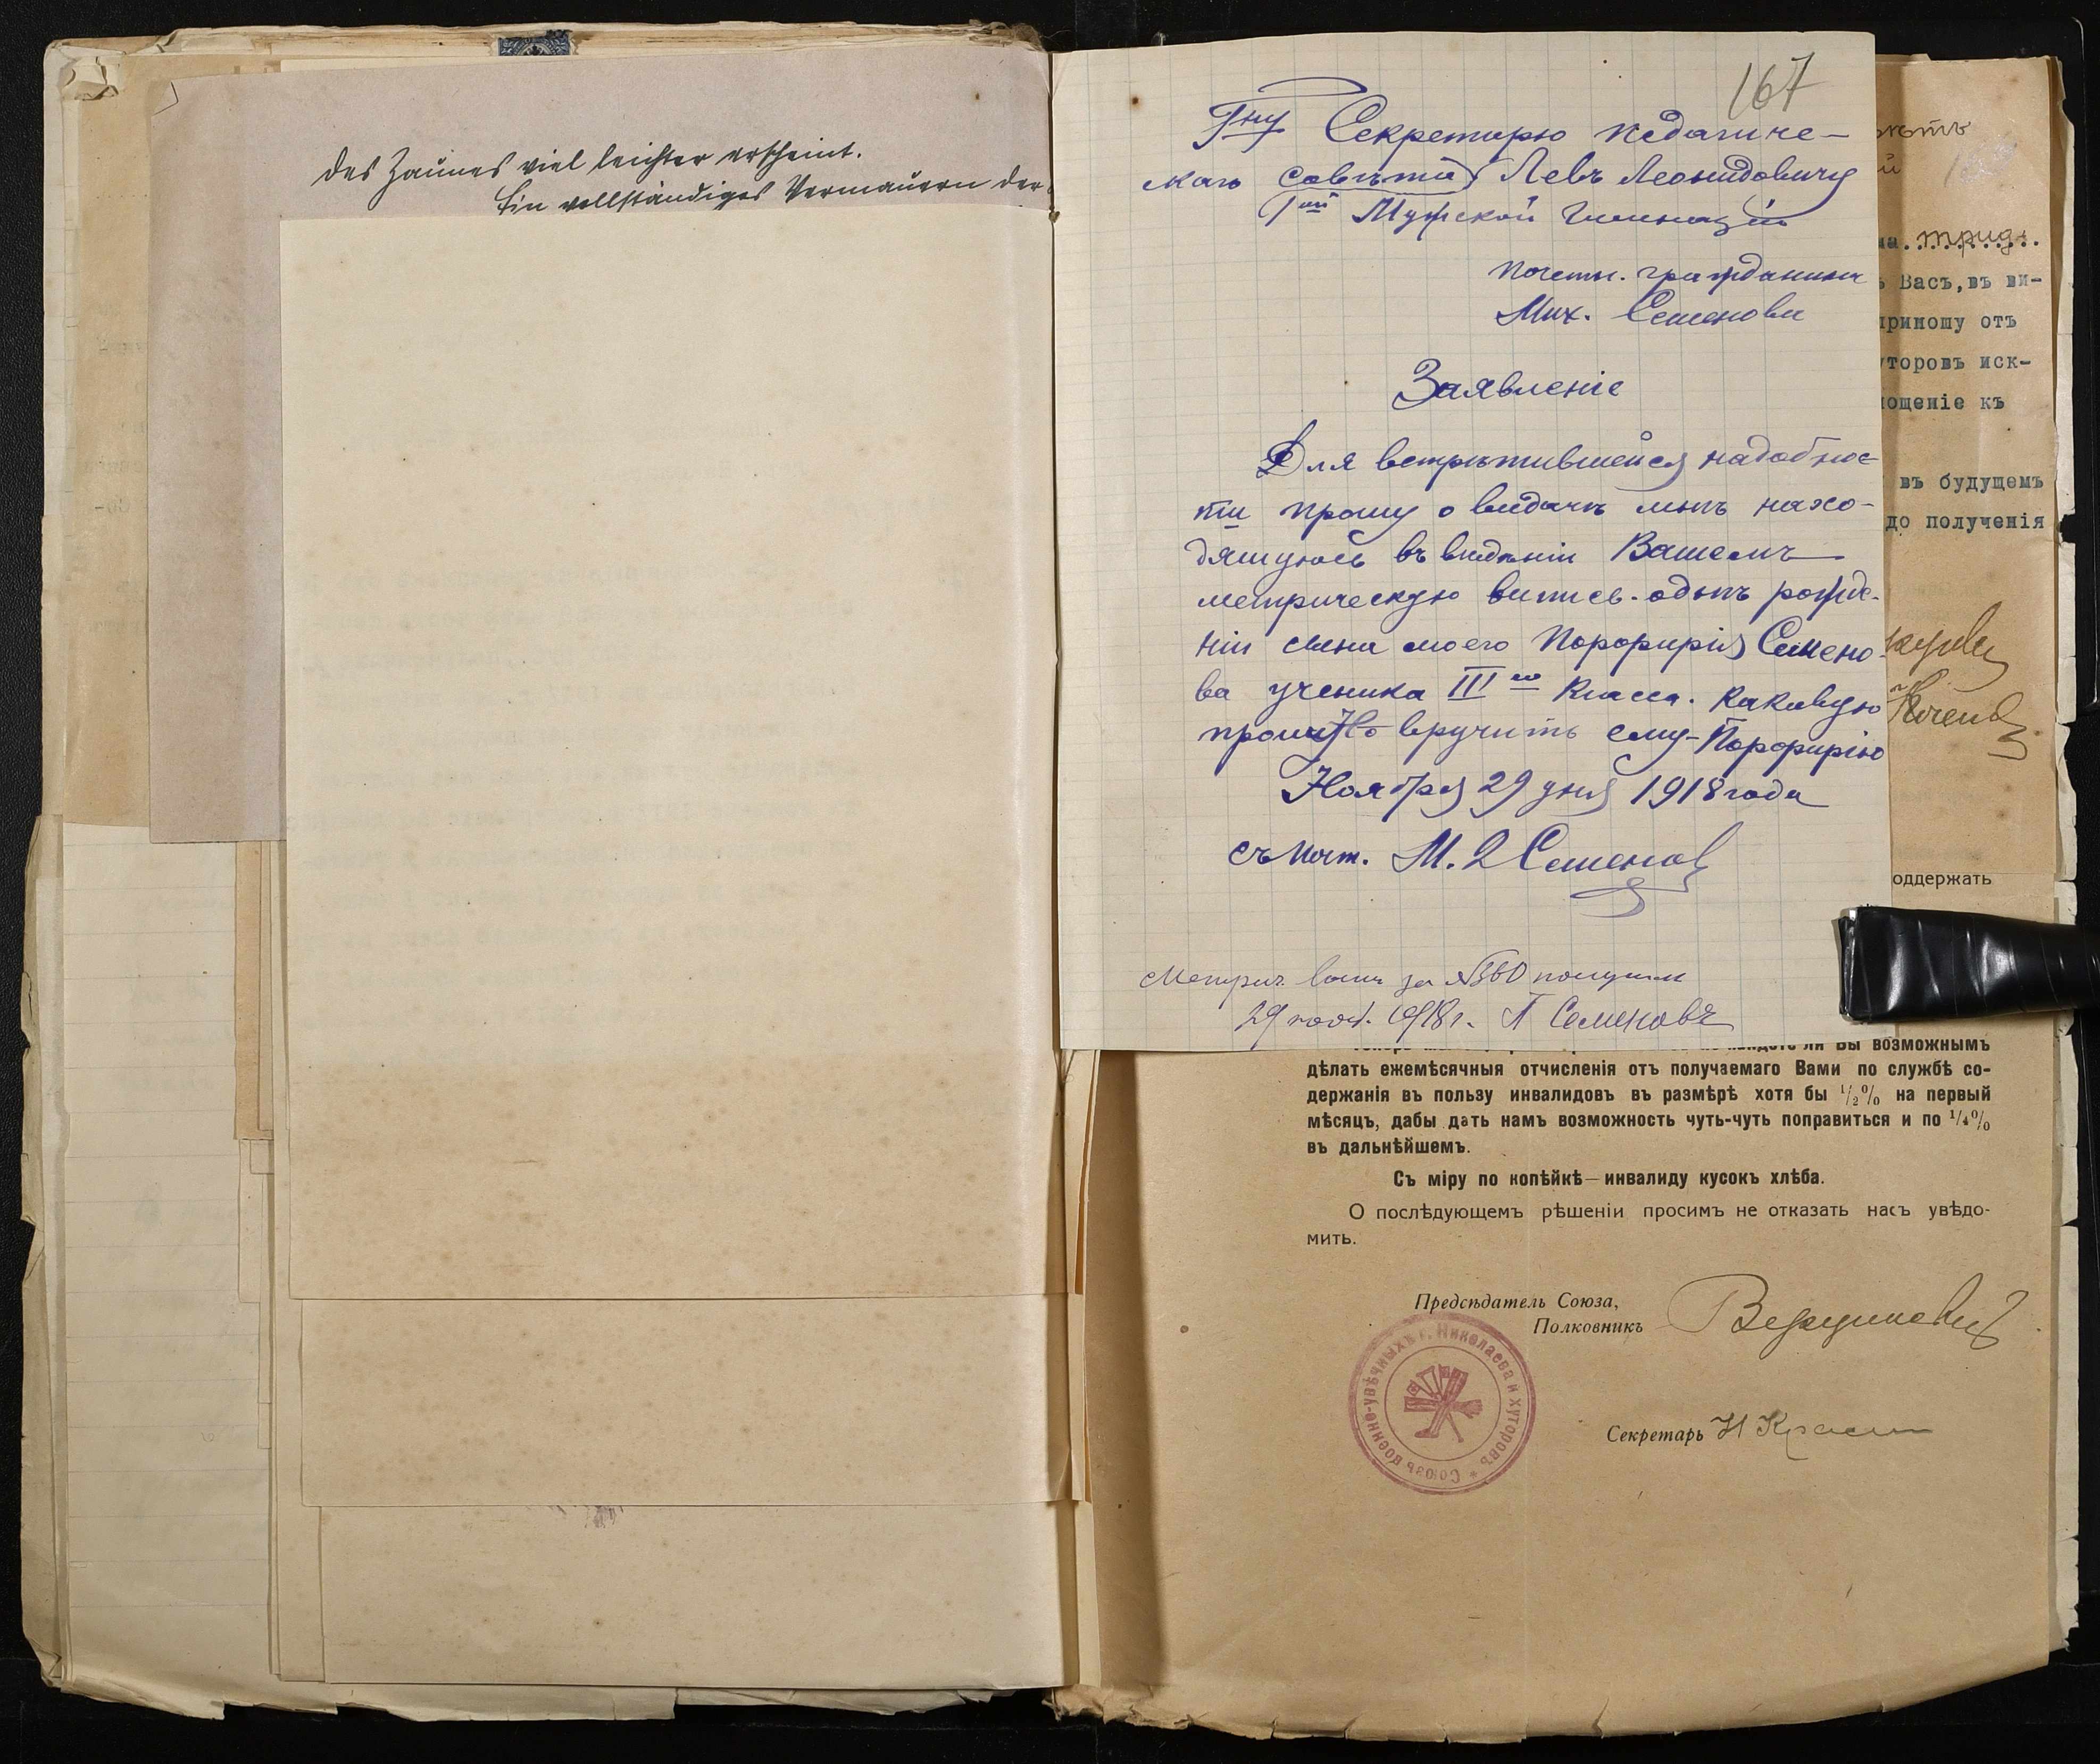 des Zaunes viel leichter erscheint.
Ein vollständiges Vermauern der
167
Гну Секретарю педагиче-
скаго совѣта Левъ Леонидовичу
1ой Мужской Гимназіи
почетн. гражданина
Мих. Семенова
Заявленіе
Для встрѣтившейся надобнос-
ти прошу о выдачѣ мнѣ нахо-
дящуюсь въ вѣдѣніи Вашемъ
метрическую выпись. одънъ рожде-
ніи сына моего Порфирія Семено-
ва ученика IIIго класса. каковую
вручить ему-Порфирію
Ноября 29 дня 1918 года
съ поч. М. Семенов
Метрич. за № 360 получил
29 нояб. 1918 г. П Семеновъ
трид.
Васъ, въ ви-
приношу отъ
уторовъ иск-
ощеніе къ
въ будущемъ
до полученія
оддержать
ли Вы возможнымъ
дѣлать ежемѣсячныя отчисленія отъ получаемаго Вами по службѣ со-
держанія въ пользу инвалидовъ въ размѣрѣ хотя бы 1/2% на первый
мѣсяцъ, дабы дать намъ возможность чуть-чуть поправиться и по 1/4%
въ дальнѣйшемъ.
Съ міру по копѣйкѣ—инвалиду кусокъ хлѣба.
О послѣдующемъ рѣшеніи просимъ не отказать насъ увѣдо-
мить.
Предсѣдатель Союза,
Полковникъ
Союзъ военно-увѣчныхъ г. Николаева и хуторовъ *
Секретарь